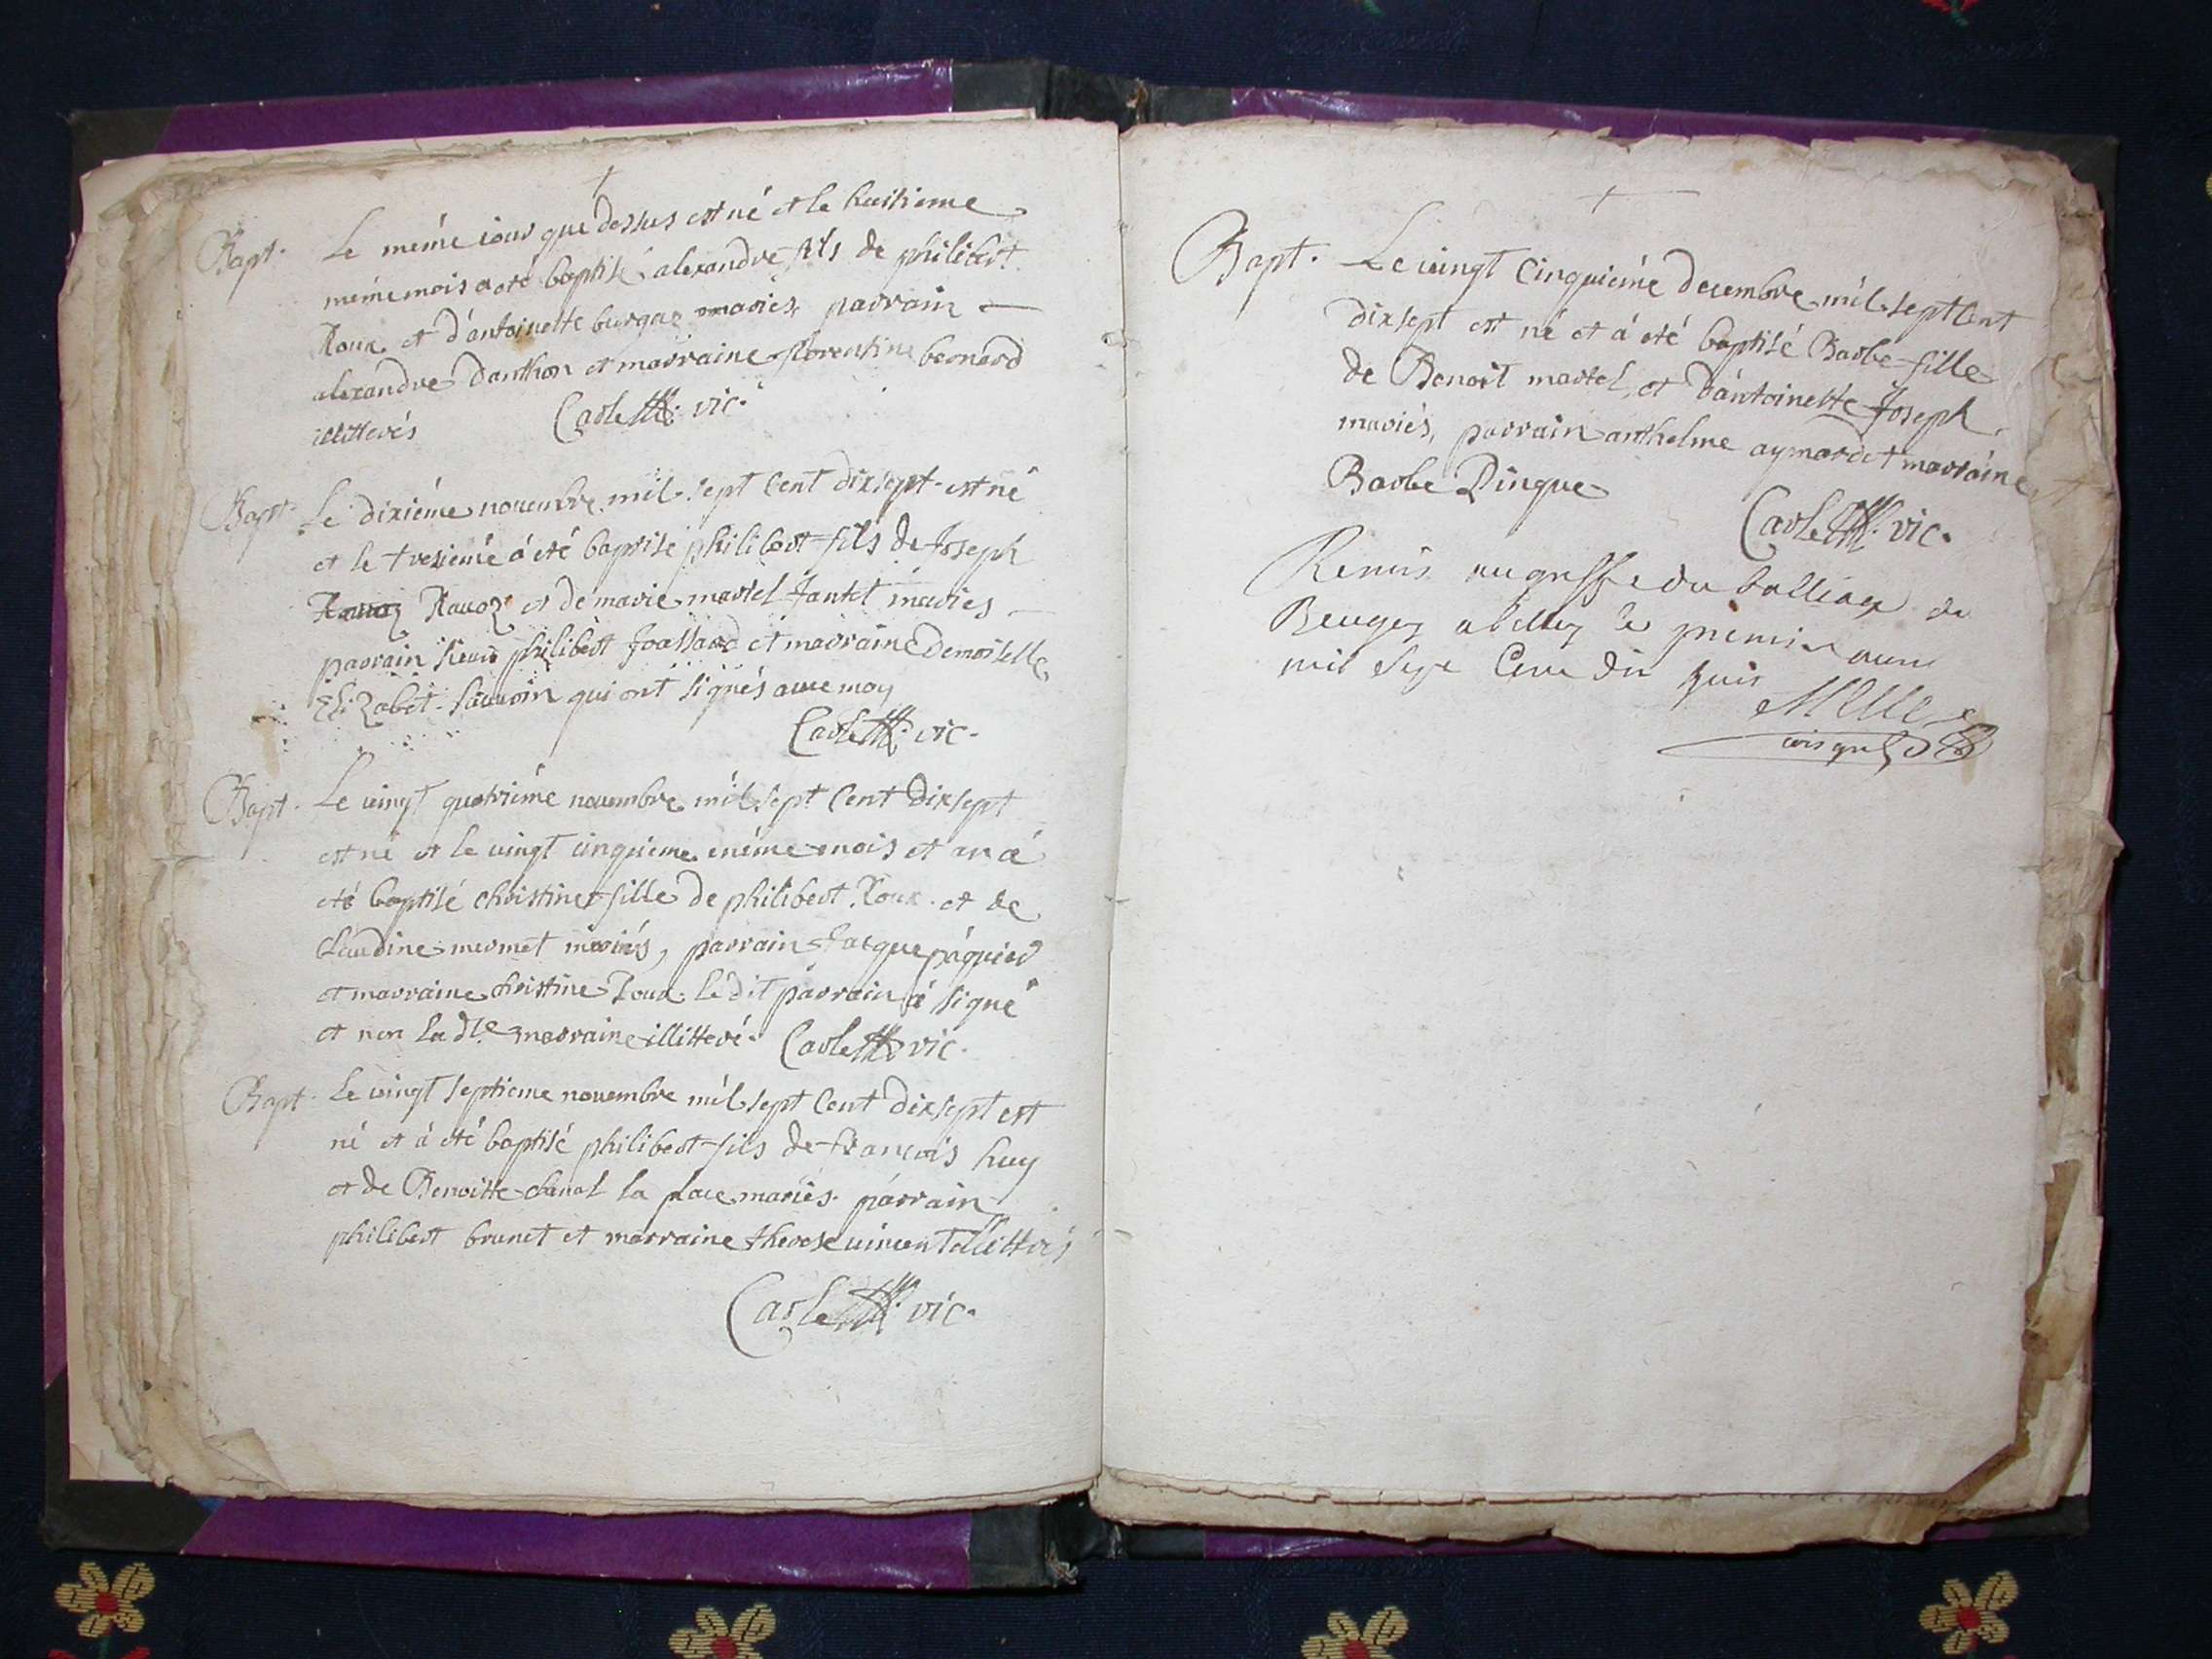 Bapt. Le même iour que dessus est né et le huitieme
même mois a eté baptisé alexandre fils de philibert
Roux et d'antoinette burgaz mariés, parrain
alexandre danthon et marraine florentine bernard
illitterés Carlett vic.
Bapt. Le dixiéme nouembre mil sept Cent dixsept est né
et le tresiemé á eté baptisé philibert fils de Joseph
Rauoz et de marie martel Jantet mariés
parrain sieur philibert Joassard et marraine Demoiselle
Elizabet qui ont signés auec moy
Carlett. vic.
Bapt. Le uingt quatriéme nouembre mil sept Cent dixsept
est né et le uingt cinquieme méme mois et an á
eté baptisé christine fille de philibert Roux et de
Claudine mermet mariés, parrain Jacque páquier
et marraine christine Roux. le dit parrain á signé
et non la dte marraine illitteré. Carlett vic.
Bapt. Le uingt septieme nouembre mil sept Cent dixsept est
né et á eté baptisé philibert fils de francois huy
et de Benoitte chanal la place mariés. párrain
philibert brunet et marraine therese uincent illitterés
Carlett. vic.
Bapt. Le uingt Cinquiéme decembre mil sept Cent
dixsept est né et á eté baptisé Barbe fille
de Benoit martel et d'ántoinette Joseph
mariés, parrain anthelme aymard et marraine
Barbe Dingue
Carlett. vic.
Remis au greffe du balliage de
Beugey a belley le premier
mil Sept Cens dix huit